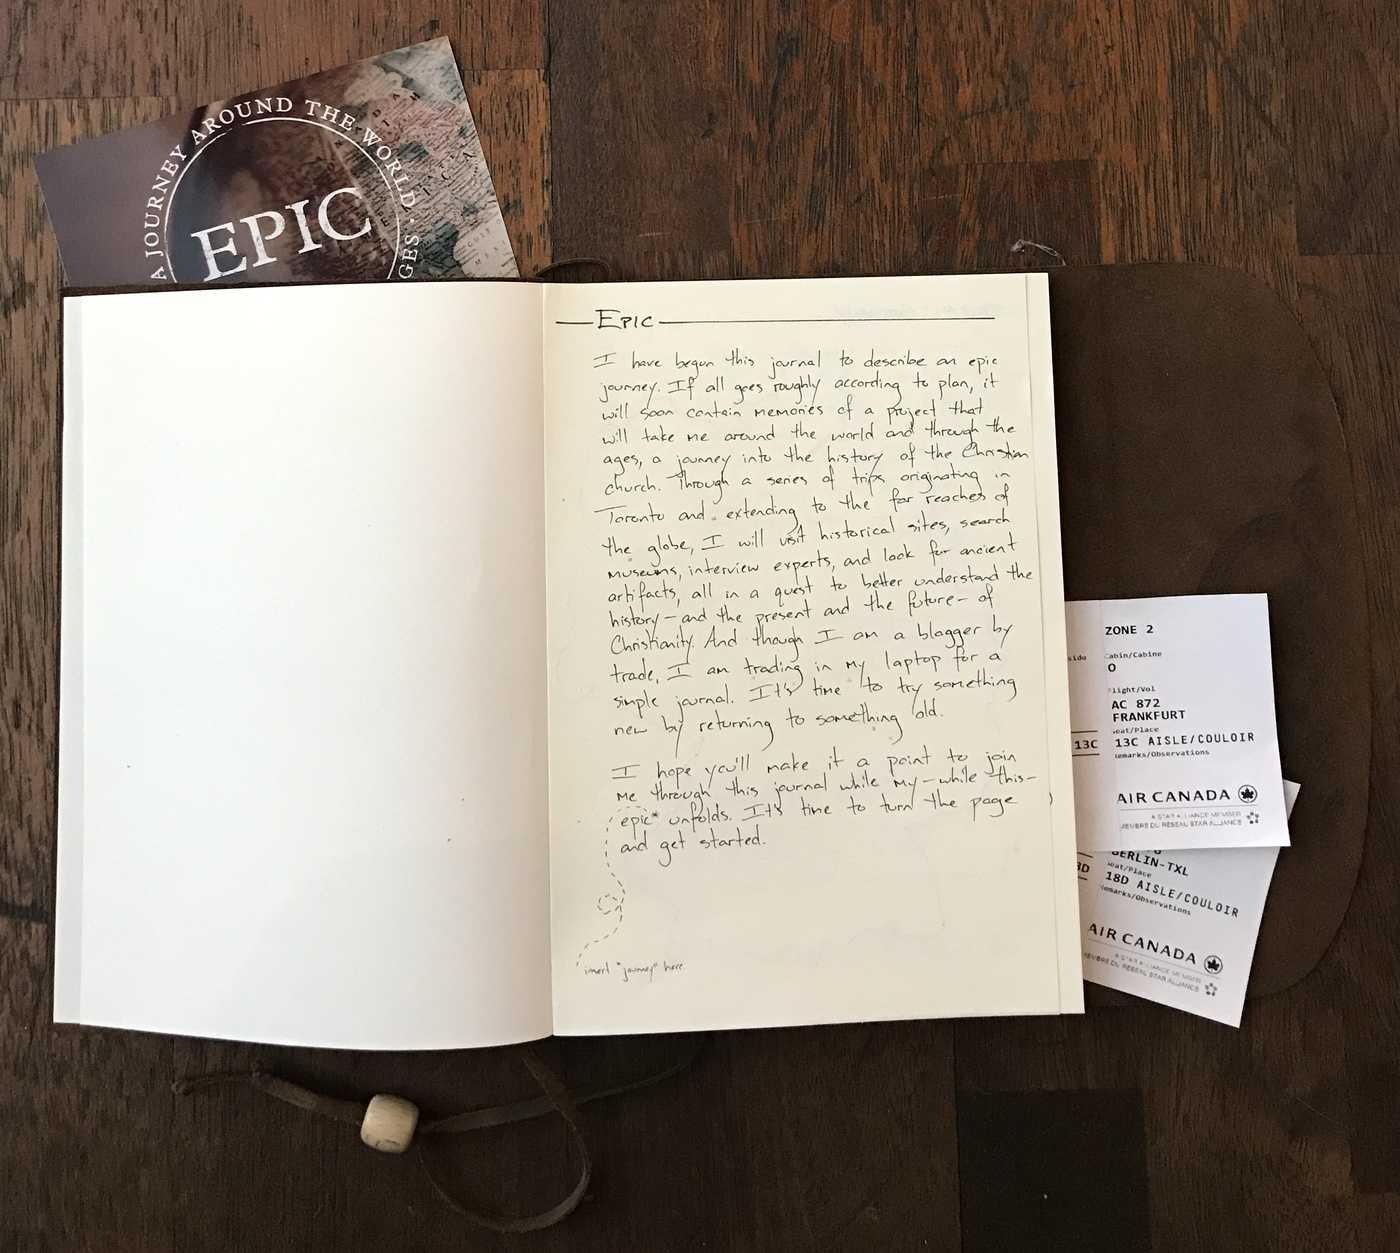 A JOURNEY AROUND THE WORLD
GES
EPIC
EPIC
I have begun this journal to describe an epic
journey. If all goes roughly according to plan, it
will soon contain memories of a project that
will take me around the world and through the
ages, a journey into the history of the Christian
church. Through a series of trips originating in
Toronto and extending to the far reaches of
the globe, I will visit historical sites, search
museums, interview experts, and look for ancient
artifacts, all in a quest to better understand the
history—and the present and the future—of
Christianity. And though I am a blogger by
trade, I am trading in my laptop for a
simple journal. It's time to try something
new by returning to something old.
I hope you'll make it a point to join
me through this journal while my—while this—
epic* unfolds. It's time to turn the page
and get started.
insert "journey" here
ZONE 2
side Cabin/Cabine
O
Flight/Vol
AC 872
FRANKFURT
Seat/Place
13C 13C AISLE/COULOIR
Remarks/Observations
AIR CANADA
A STAR ALLIANCE MEMBER
MEMBRE DU RÉSEAU STAR ALLIANCE
BERLIN-TXL
Seat/Place
8D 18D AISLE/COULOIR
Remarks/Observations
AIR CANADA
A STAR ALLIANCE MEMBER
MEMBRE DU RÉSEAU STAR ALLIANCE